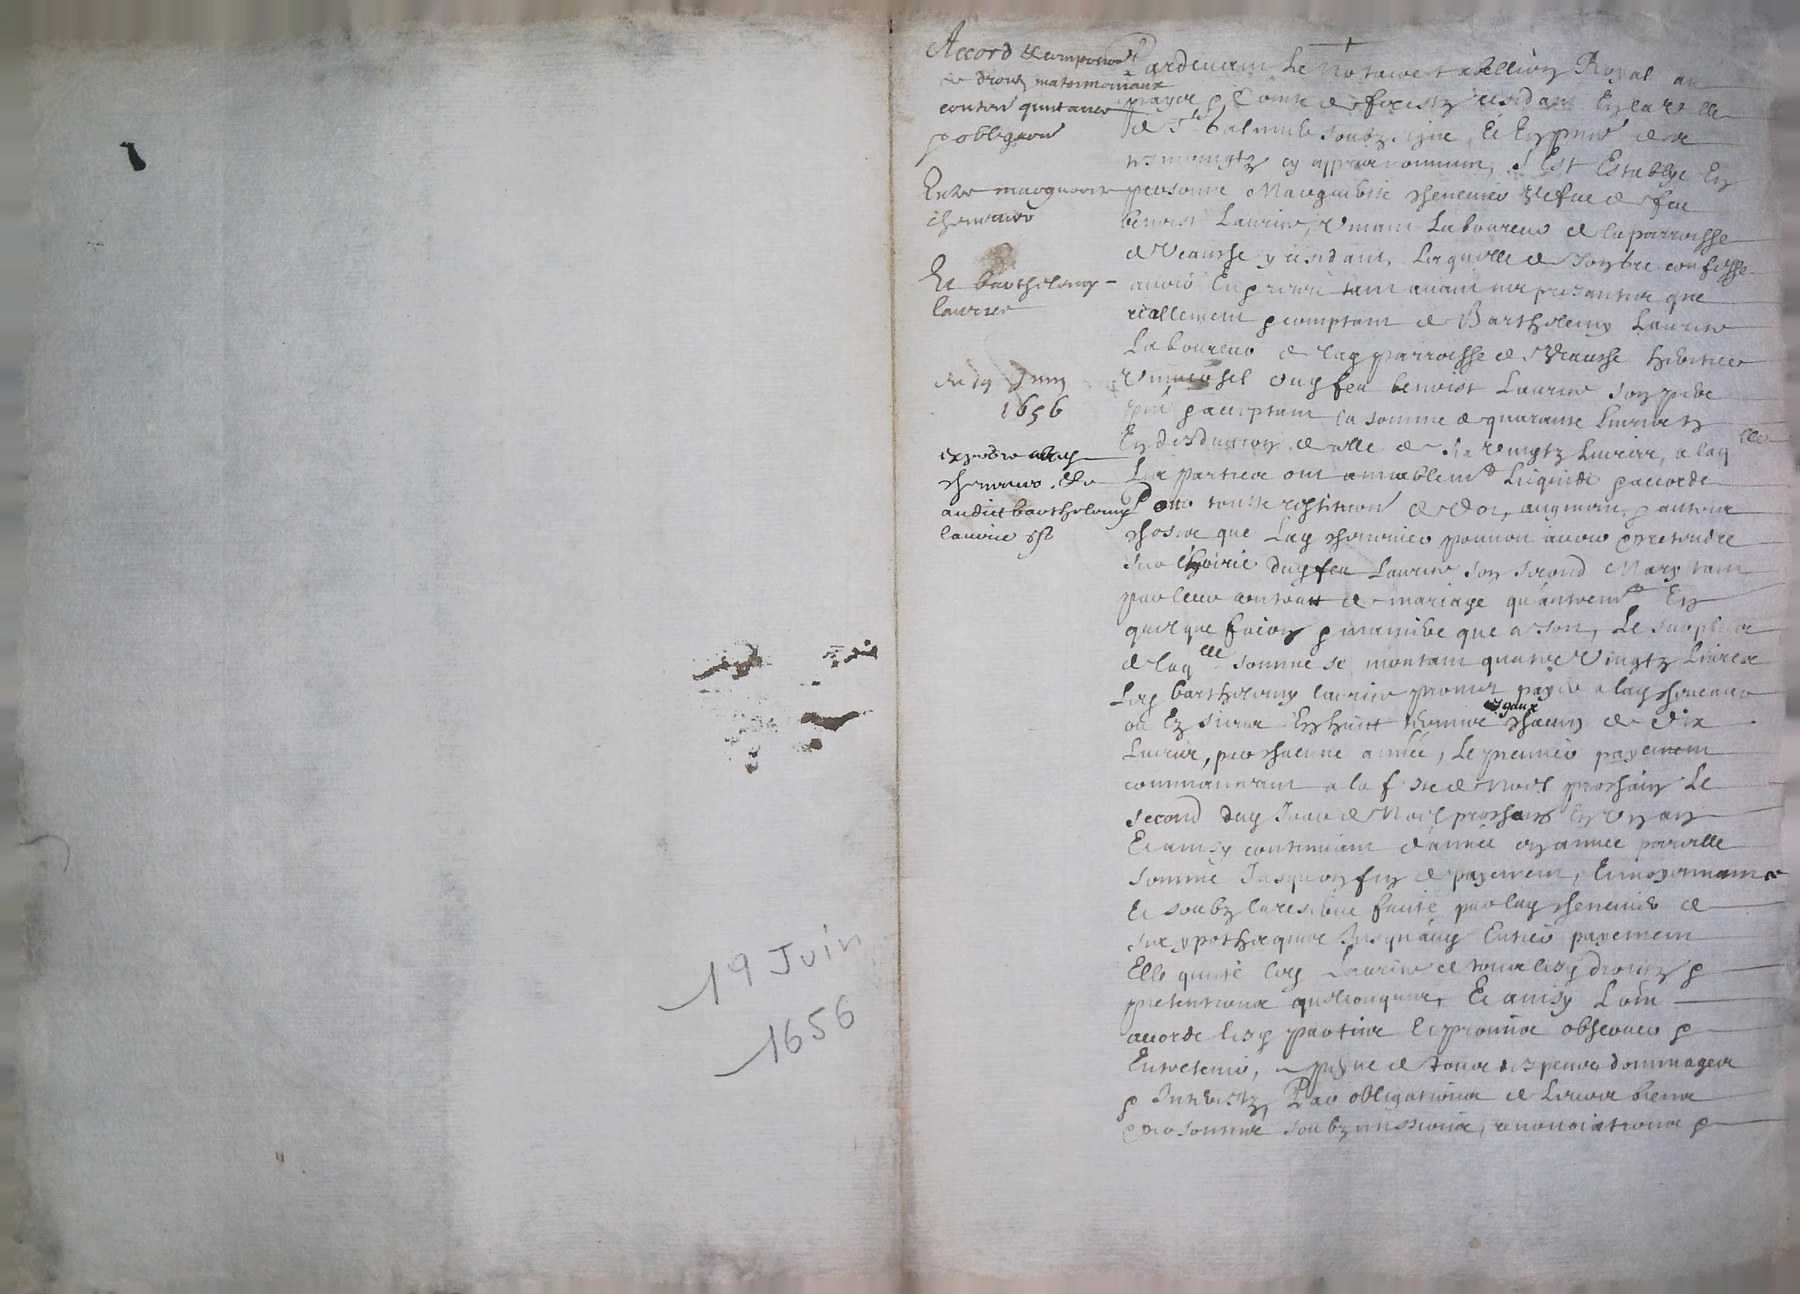 19 Juin
1656
Accord
de droitz matrimoniaux
contenant quittance
p obligation
Entre margueritte
chenevier
Et barthelemy
laurier
du 19 Juin
1656
expedié a lad
chenevier. Et
audict barthelemy
laurier
Pardevant Le Notaire tabellion Royal au
p Comté de forestz residant En la ville
de St Galmier soubz signé, Et En pnce de
tesmoingtz cy apprés nommez, S'Est Establye En
personne Marguerite chenevier vefve de feu
benoist Laurier, vivant Laboureur de la parroisse
de Veausse y residant, Laquelle de son gré confesse
avoir Eu p receu tant avant ces presantes que
réallement p comptant de Barthelemy Laurier
Laboureur de lad parroisse de Veausse heritier
Universel dud feu benoist Laurier son pere
pnt p acceptant la somme de quarante Livres
En desduction de celle de six vingtz Livres, a laq lle
Les parties ont amiablemt Liquidé p accordé
Pour toutte restitution de dot, augment, p autres
choses que Lad chenevier pouvoit avoir p pretendre
sur l'hoirie dud feu Laurier son second Mary tant
par leur contratt de mariage qu'autremt En
quelque façon p maniere que ce soit, Le surplus
de laq lle somme se montant quatre vingtz Livres
Led barthelemy laurier promet payer a lad chenevier
ou Es siens En huitt termes esgaux chacun de dix
Livres, par chacune année, Le premier payement
commancant a la feste de Noel prochain Le
second dud Jour de Noel prochain En Un an
Et ainsy continuant d'année en année pareille
somme Jusqu'en fin de payement, Et moyennant ce
Et soubz la reserve faitte par lad chenevier de
ses ypotheques Jusqu'aud Entier payement
Elle quitte led Laurier de tous lesd droitz p
pretentions quelconques, Et ainsy L'ont
accordé lesd parties Et promis observer p
Entretenir, a peyne de tous despens dommages
p Interestz, Par obligations de Leurs biens
p personnes soubzmissions, renonciations p